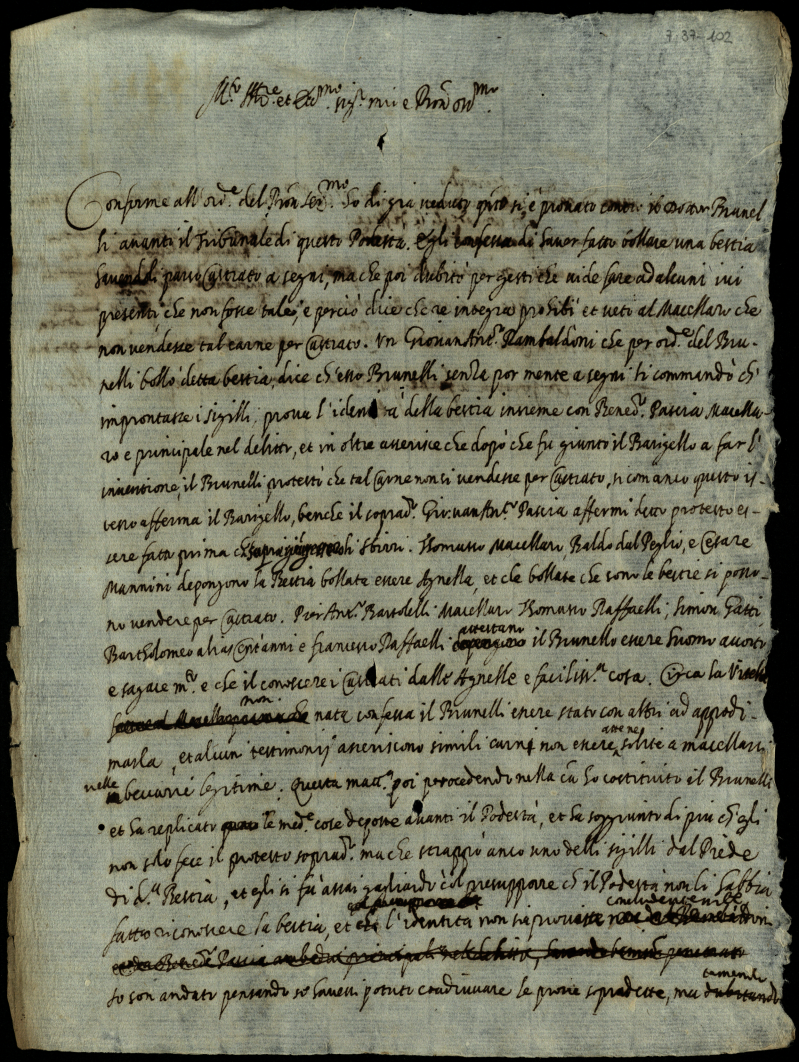 7-37-102
M.to Ill.re et Ecc.mo sig.r mio e P̃ron oss.mo
Conforme all'ord.e del P̃ron Ser.mo ho di già veduto q̃to si è provato contro il Dottor Brunel
li avanti il Tribunale di questo Podestà. Egli confessa di haver fatto bollare una bestia
per castrato a segni, ma che poi dubitò per gesti che vide fare ad alcuni ivi
presenti che non fosse tale, e perciò dice che re integra prohibì et vetò al Macellaro che
non vendesse tal carne per Castrato. Un Giovan Ant.o Rambaldoni che per ord.e del Bru-
nelli bollò detta bestia, dice ch'esso Brunelli senza por mente a segni li commandò ch'
improntasse i sigilli: prova l'identità della bestia insieme con Bened.o Pascia Macella-
ro e principale nel delitto, et in oltre asserisce che dopò che fu giunto il Barigello a far l'
inventione, il Brunelli protestò che tal Carne non si vendesse per Castrato, si com'anco questo is-
tesso afferma il Barigello, benche il soprad.o Giovan Ant.o Pascia affermi detto protesto es-
sere fatto prima ch li Sbirri. Thomasso Macellaro Baldo dal Peglio, e Cesare
Mannini depongono la Bestia bollata essere Agnella, et che bollate che sono le bestie si posso-
no vendere per Castrato. Pier Ant.o Bartolelli Macellaro Thomasso Raffaelli, Simon Gatti
Bartholomeo alias Cent'anni e francesco Raffaelli attestano il Brunello essere huomo accorto
e sagace m.to e che il conoscere i Castrati dalle Agnelle è facilis.ma cosa. Circa la Vitella
non nata confessa il Brunelli essere stato con altri ad apprezzi-
marla, et alcun testimonij asseriscono simili carni non essere solite a macellarsi
nelle beccarie legitime. Questa matt.a poi procedendo nella cã ho costituito il Brunelli
et ha replicato le med.e cose deposte avanti il Podestà, et ha soggiunto di più ch'egli
non solo fece il protesto soprad.o ma che strappò anco uno delli sigilli dal Piede
di d.a Bestia, et egli si fà assai gagliardo col presupporre ch'il Podestà non li habbia
fatto riconoscere la bestia, et che l'identità non sia provata concludentem.te
Io son andato pensando s'io havessi potuto coadiuvare le prove sopradette, ma